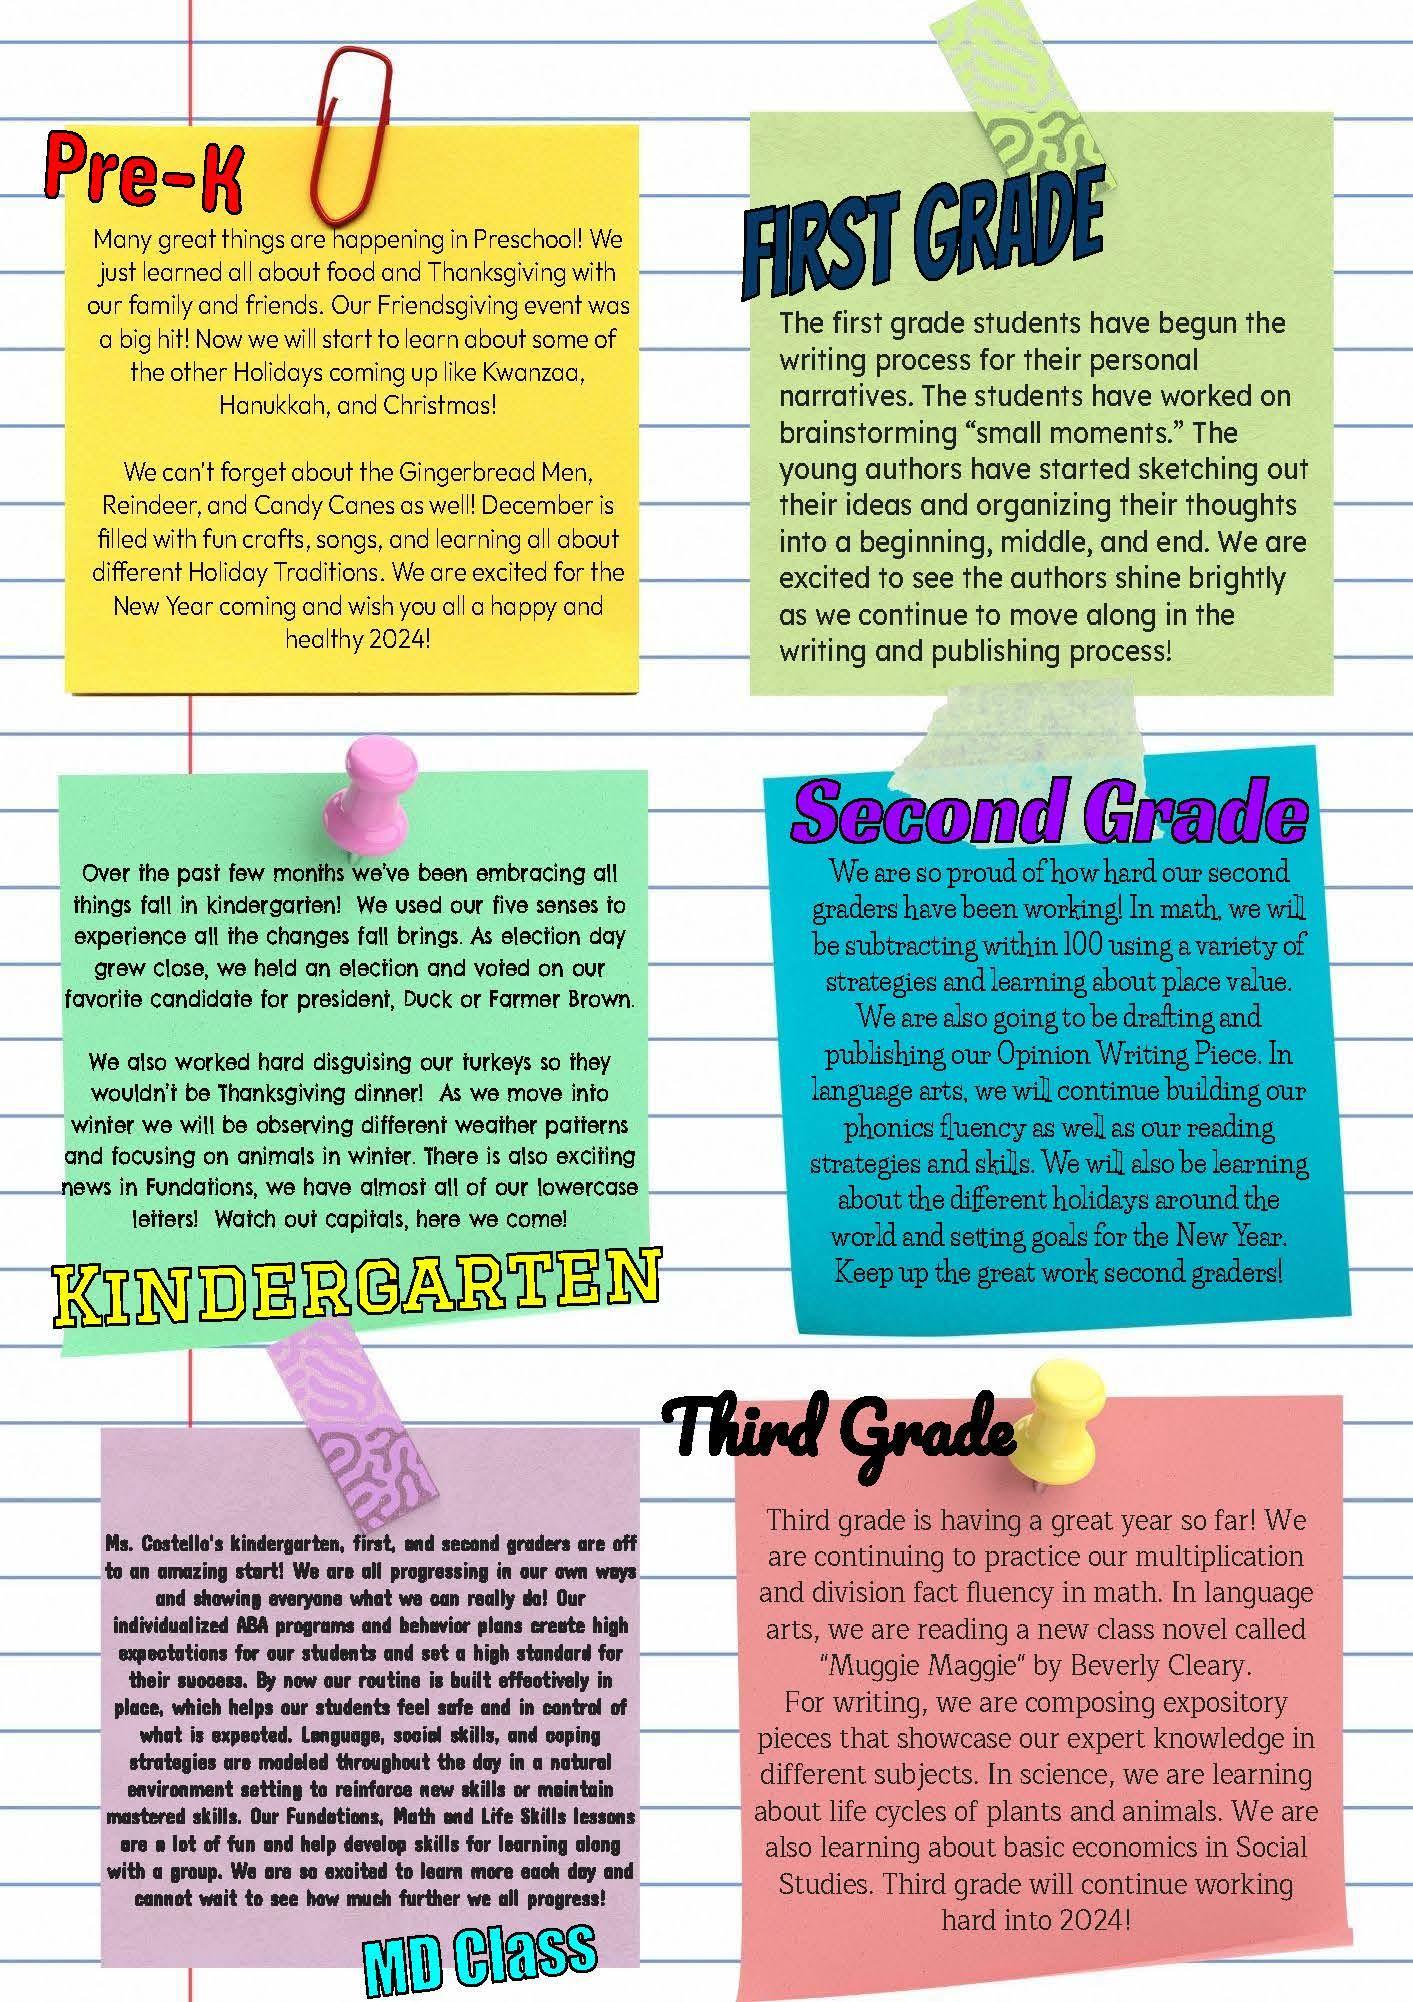 Pre-K
Many great things are happening in Preschool! We
just learned all about food and Thanksgiving with
our family and friends. Our Friendsgiving event was
a big hit! Now we will start to learn about some of
the other Holidays coming up like Kwanzaa,
Hanukkah, and Christmas!
We can't forget about the Gingerbread Men,
Reindeer, and Candy Canes as well! December is
filled with fun crafts, songs, and learning all about
different Holiday Traditions. We are excited for the
New Year coming and wish you all a happy and
healthy 2024!
FIRST GRADE
The first grade students have begun the
writing process for their personal
narratives. The students have worked on
brainstorming “small moments.” The
young authors have started sketching out
their ideas and organizing their thoughts
into a beginning, middle, and end. We are
excited to see the authors shine brightly
as we continue to move along in the
writing and publishing process!
Over the past few months we've been embracing all
things fall in kindergarten! We used our five senses to
experience all the changes fall brings. As election day
grew close, we held an election and voted on our
favorite candidate for president, Duck or Farmer Brown.
We also worked hard disguising our turkeys so they
wouldn't be Thanksgiving dinner! As we move into
winter we will be observing different weather patterns
and focusing on animals in winter. There is also exciting
news in Fundations, we have almost all of our lowercase
letters! Watch out capitals, here we come!
KINDERGARTEN
Second Grade
We are so proud of how hard our second
graders have been working! In math, we will
be subtracting within 100 using a variety of
strategies and learning about place value.
We are also going to be drafting and
publishing our Opinion Writing Piece. In
language arts, we will continue building our
phonics fluency as well as our reading
strategies and skills. We will also be learning
about the different holidays around the
world and setting goals for the New Year.
Keep up the great work second graders!
Ms. Costello's kindergarten, first, and second graders are off
to an amazing start! We are all progressing in our own ways
and showing everyone what we can really do! Our
individualized ABA programs and behavior plans create high
expectations for our students and set a high standard for
their success. By now our routine is built effectively in
place, which helps our students feel safe and in control of
what is expected. Language, social skills, and coping
strategies are modeled throughout the day in a natural
environment setting to reinforce new skills or maintain
mastered skills. Our Fundations, Math and Life Skills lessons
are a lot of fun and help develop skills for learning along
with a group. We are so excited to learn more each day and
cannot wait to see how much further we all progress!
MD Class
Third Grade
Third grade is having a great year so far! We
are continuing to practice our multiplication
and division fact fluency in math. In language
arts, we are reading a new class novel called
"Muggie Maggie" by Beverly Cleary.
For writing, we are composing expository
pieces that showcase our expert knowledge in
different subjects. In science, we are learning
about life cycles of plants and animals. We are
also learning about basic economics in Social
Studies. Third grade will continue working
hard into 2024!